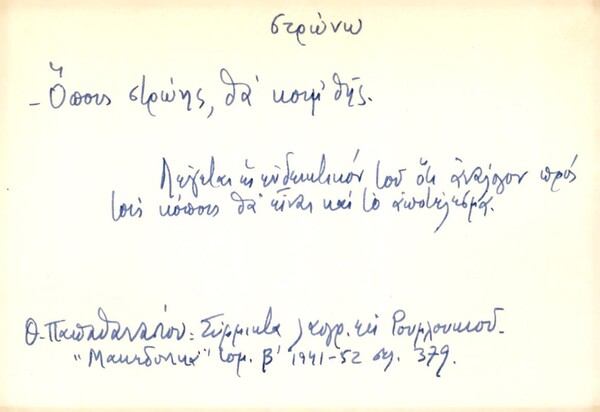 στρώνω
- Ὅπους στρώης, θὰ κοιμ' θῆς.
Λέγεται ὡς ἐνδεικτικόν τοῦ ὅτι ἀνάλογον πρός
τούς κόπους θὰ εἶναι καί τὸ ἀποτέλεσμα.
Θ. Παπαθανασίου: Σύμμικτα λαογρ. τοῦ Ρουμλουκιοῦ.
"Μακεδονικά" τομ. Β' 1941-52 σελ. 379.